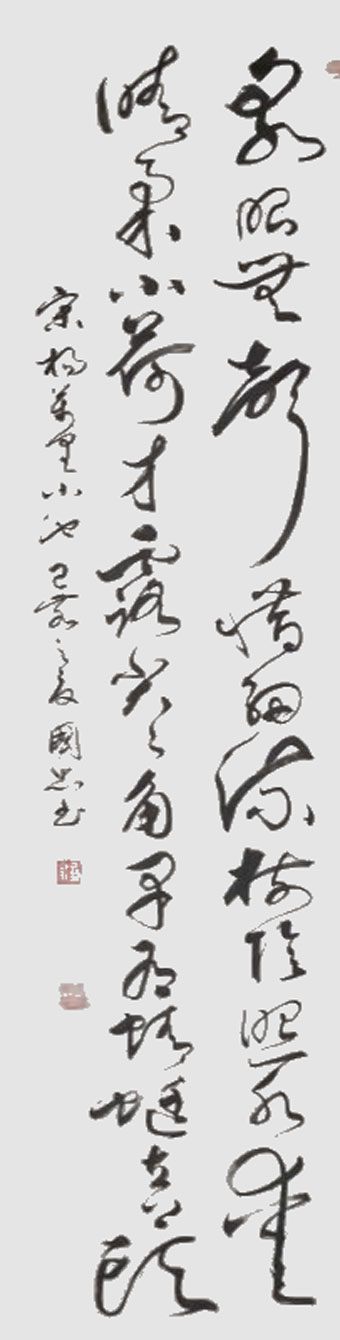 泉眼無聲惜細流樹陰照水愛
晴柔小荷才露尖々角早有蜻蜓立上頭
宋楊萬里小池己亥之夏國忠书